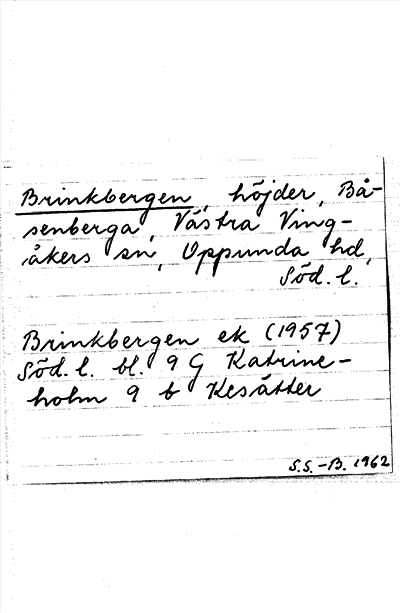 Brinkbergen, höjder, Bå-
senberga, Västra Ving-
åkers sn, Oppunda hd,
Söd. l.
Brinkbergen ek (1957)
Söd. l. bl. 9 G Katrine-
holm 9 b Kesätter
S.S.-B. 1962